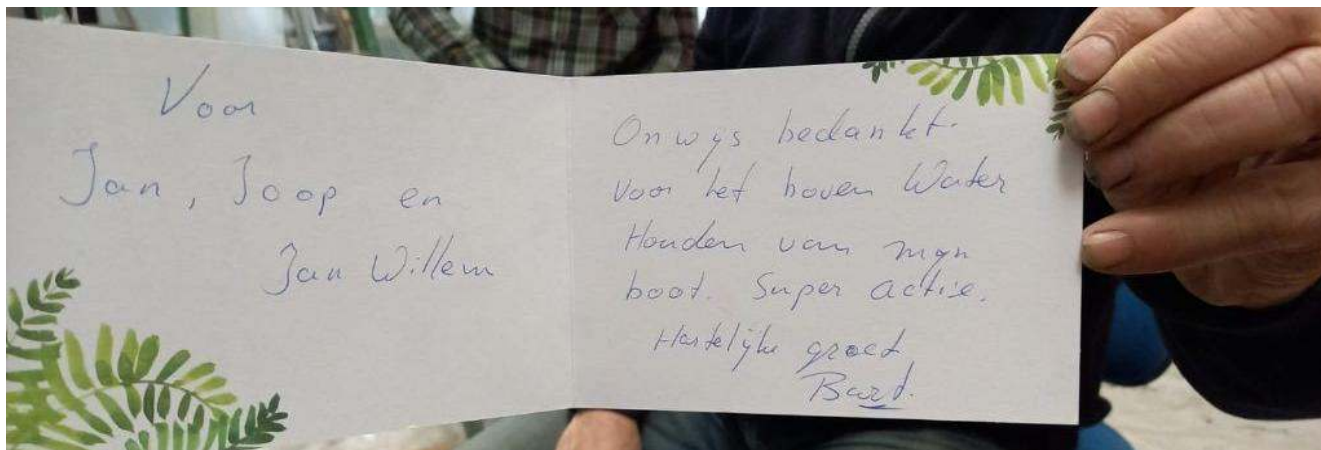 Voor
Jan, Joop en
Jan Willem
Onwijs bedankt.
voor het boven Water
Houden van mijn
boot. Super actie.
Hartelijke groet
Bard.